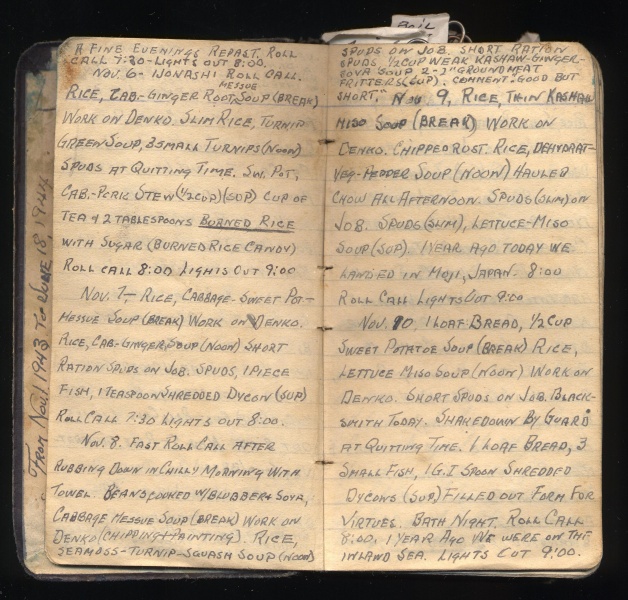 From Nov. 1 1943 To June 18, 1944
A FINE EVENINGS REPAST. ROLL
CALL 7:30-LIGHTS OUT 8:00.
NOV. 6- WONASHI ROLL CALL.
MESSUE
RICE, CAB.-GINGER ROOT-SOUP (BREAK)
WORK ON DENKO. SLIM RICE, TURNIP
GREEN SOUP, 3 SMALL TURNIPS (NOON)
SPUDS AT QUITTING TIME. SW. POT,
CAB.-PORK STEW (1/2 CUP) (SUP) CUP OF
TEA & 2 TABLESPOONS BURNED RICE
WITH SUGAR (BURNED RICE CANDY)
ROLL CALL 8:00 LIGHTS OUT 9:00
NOV. 7- RICE, CABBAGE-SWEET POT-
MESSUE SOUP (BREAK) WORK ON DENKO.
RICE, CAB-GINGER SOUP (NOON) SHORT
RATION SPUDS ON JOB. SPUDS, 1 PIECE
FISH, 1 TEASPOON SHREDDED DYCON (SUP)
ROLL CALL 7:30 LIGHTS OUT 8:00.
NOV. 8. FAST ROLL CALL AFTER
RUBBING DOWN IN CHILLY MORNING WITH
TOWEL. BEANS COOKED W/BLUBBER & SOYA,
CABBAGE MESSUE SOUP (BREAK) WORK ON
DENKO (CHIPPING & PAINTING). RICE,
SEAMOSS-TURNIP-SQUASH SOUP (NOON)
SPUDS ON JOB. SHORT RATION
SPUDS, 1/2 CUP WEAK KASHAW-GINGER-
SOYA SOUP 2-2" GROUND MEAT
FRITTERS (SUP). COMMENT "GOOD BUT
SHORT." NOV 9, RICE, THIN KASHAW
MISO SOUP (BREAK) WORK ON
DENKO. CHIPPED RUST. RICE, DEHYDRAT-
VEG-PEDDER SOUP (NOON) HAULED
CHOW ALL AFTERNOON. SPUDS (SLIM) ON
JOB. SPUDS (SLIM), LETTUCE-MISO
SOUP (SUP). 1 YEAR AGO TODAY WE
LANDED IN MOJI, JAPAN. 8:00
ROLL CALL LIGHTS OUT 9:00
NOV. 10. 1 LOAF BREAD, 1/2 CUP
SWEET POTATOE SOUP (BREAK) RICE,
LETTUCE MISO SOUP (NOON) WORK ON
DENKO. SHORT SPUDS ON JOB. BLACK-
SMITH TODAY. SHAKEDOWN BY GUARD
AT QUITTING TIME. 1 LOAF BREAD, 3
SMALL FISH, 1 G.I SPOON SHREDDED
DYCONS (SUP.) FILLED OUT FORM FOR
VIRTUES. BATH NIGHT. ROLL CALL
8:00. 1 YEAR AGO WE WERE ON THE
INLAND SEA. LIGHTS OUT 9:00.